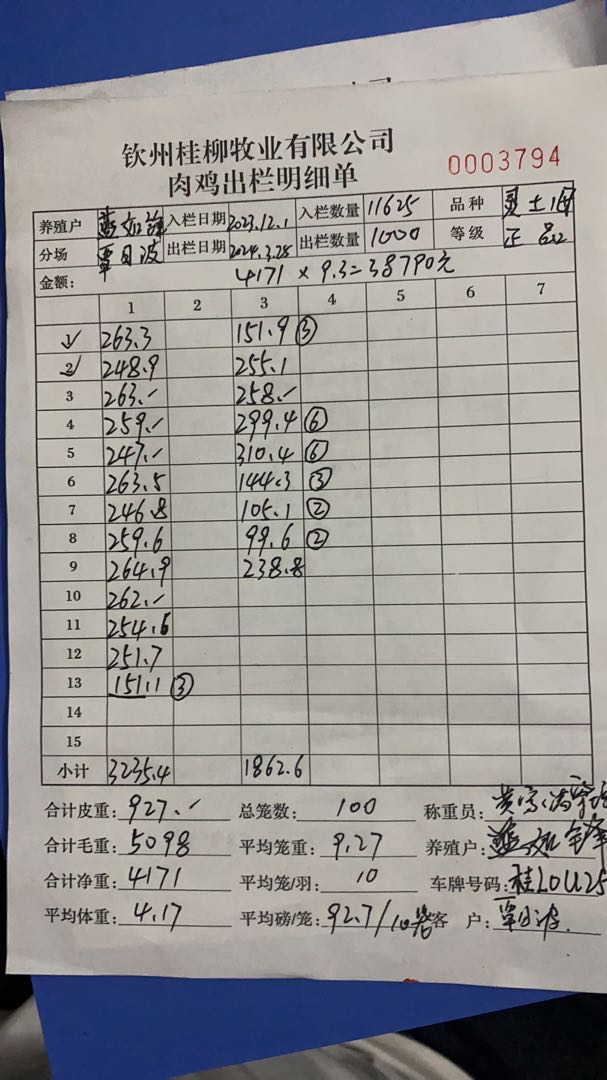 钦州桂柳牧业有限公司
肉鸡出栏明细单
0003794
养殖户 入栏日期 2023.12.1 入栏数量 11625 品种 土
分场 覃日波 出栏日期 2024.3.25 出栏数量 1000 等级 正品
金额: 4171 × 9.3=38790元
1 2 3 4 5 6 7
1 263.3 151.9 ③
2 248.9 255.1
3 263.- 258.-
4 259.- 299.4 ⑥
5 247.- 310.4 ⑥
6 263.5 144.3 ③
7 246.8 105.1 ②
8 259.6 99.6 ②
9 264.9 238.8
10 262.-
11 254.6
12 251.7
13 151.1 ③
14
15
小计 3235.4 1862.6
合计皮重: 927.- 总笼数: 100 称重员:
合计毛重: 5098 平均笼重: 9.27 养殖户:
合计净重: 4171 平均笼/羽: 10 车牌号码: 桂L0U25
平均体重: 4.17 平均磅/笼: 92.7/10笼 客 户: 覃日波.